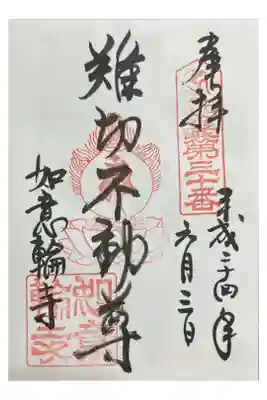 奉拝
第三十番
平成二十四年
六月三日
難切不動尊
如意輪寺
如意輪寺